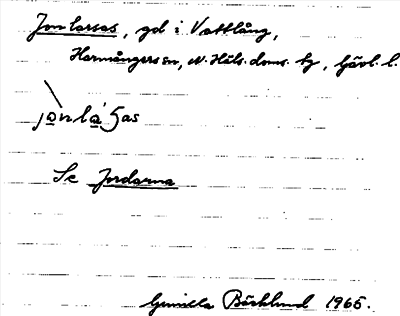 Jon Larsas, gd i Vattlång,
Harmångers sn, N. Häls. doms. tg, Gävl. l.
jo̲nla̲´ʂas
Se Jordarna
Gunilla Bäcklund 1965.